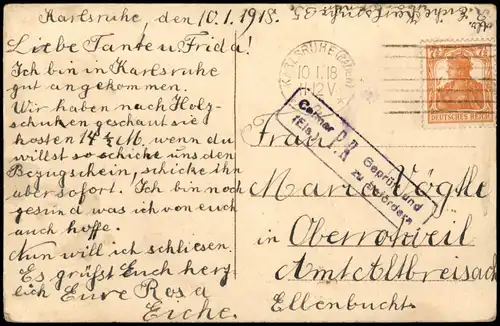 Karlsruhe, den 10.1.1918.
Liebe Tante u Frida!
Ich bin in Karlsruhe
gut angekommen.
Wir haben nach Holz-
schuken geschaut sie
kosten 14 ½ M. wenn du
willst so schicke uns den
Bezugschein, schicke ihn
aber sofort. Ich bin noch
gesund was ich von euch
auch hoffe.
Nun will ich schliesen.
Es grüßt Euch herz
lich Eure Rosa
Eiche.
Eiche
35
KARLSRUHE (BADEN)
10.1.18
12V
DEUTSCHES REICH
Geprüft und
zu befördern
Frau
Maria Vögtle
in Oberrotweil
Amt Altbreisach
Ellenbucht.